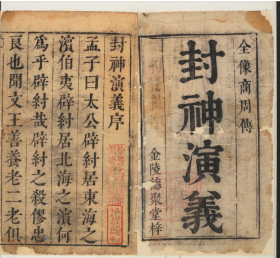 全像商周傳
封神演義
金陵德聚堂梓
封神演義序
孟子曰太公辟紂居東海之
濱伯夷辟紂居北海之濱何
爲乎辟紂哉辟紂之殺僇忠
良也聞文王善養老二老俱